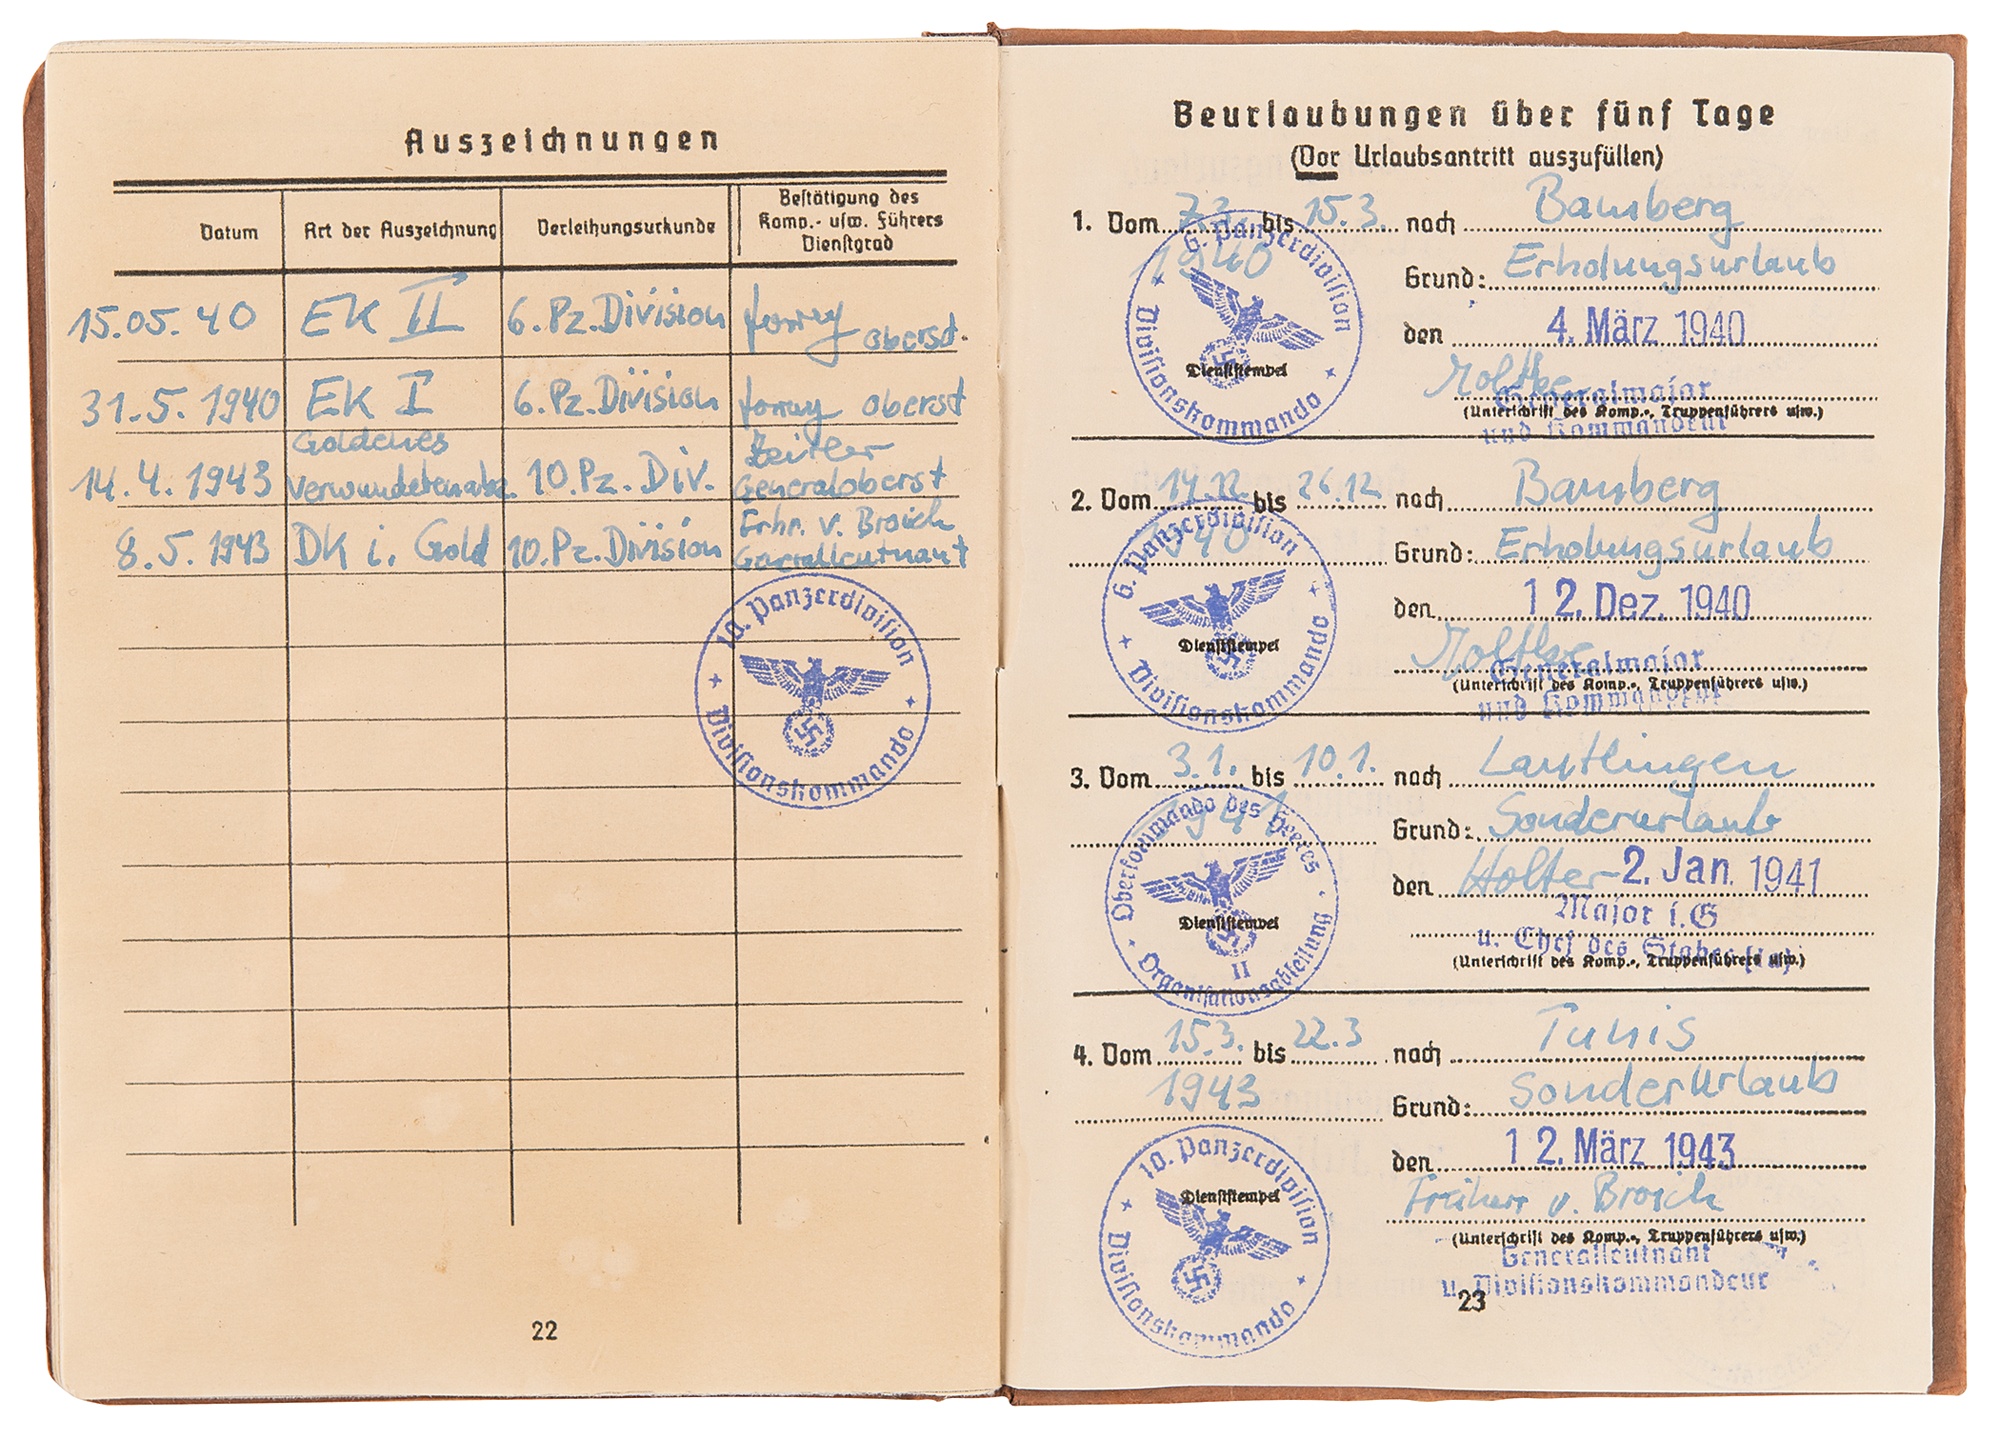 Auszeichnungen
Datum
Art der Auszeichnung
Verleihungsurkunde
Bestätigung des
Komp.- usw. Führers
Dienstgrad
15.05.40 EK II 6.Pz.Division oberst.
31.5.1940 EK I 6.Pz.Division oberst
Goldenes Zeitler
14.4.1943 Verwundetenabz. 10.Pz.Div. Generaloberst
Frhr. v. Broich
8.5.1943 DK i. Gold 10.Pz.Division Generalleutnant
10. Panzerdivision
Divisionskommando
22
Beurlaubungen über fünf Tage
(Vor Urlaubsantritt auszufüllen)
1. Vom 7.3. bis 15.3. nach Bamberg
1940
Grund: Erholungsurlaub
6. Panzerdivision
Divisionskommando
Dienststempel
den 4. März 1940
Moltke
Generalmajor
(Unterschrift des Komp.-, Truppenführers usw.)
und Kommandeur
2. Vom 14.12. bis 26.12. nach Bamberg
1940
Grund: Erholungsurlaub
6. Panzerdivision
Divisionskommando
Dienststempel
den 12. Dez. 1940
Moltke
Generalmajor
(Unterschrift des Komp.-, Truppenführers usw.)
und Kommandeur
3. Vom 3.1. bis 10.1. nach Lautlingen
1941
Grund: Sonderurlaub
Oberkommando des Heeres
Organisationsabteilung
II
Dienststempel
den Holter 2. Jan. 1941
Major i.G
u. Chef des Stabes (Ia)
(Unterschrift des Komp.-, Truppenführers usw.)
4. Vom 15.3. bis 22.3 nach Tunis
1943
Grund: Sonderurlaub
10. Panzerdivision
Divisionskommando
Dienststempel
den 12. März 1943
Freiherr v. Broich
(Unterschrift des Komp.-, Truppenführers usw.)
Generalleutnant
u. Divisionskommandeur
23